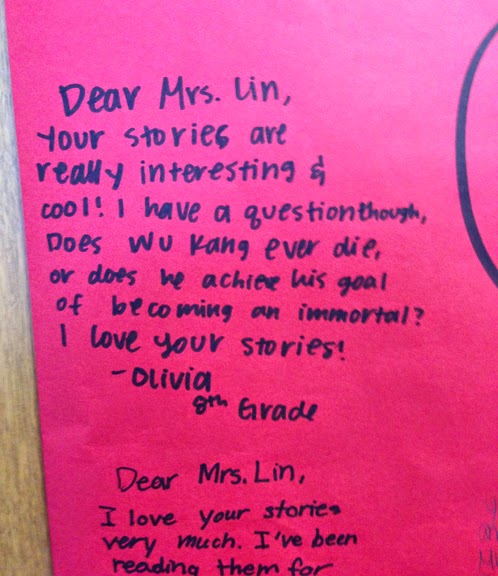 Dear Mrs. Lin,
Your stories are
really interesting &
cool! I have a question though,
Does Wu Kang ever die,
or does he achieve his goal
of becoming an immortal?
I love your stories!
-Olivia
8th Grade
Dear Mrs. Lin,
I love your stories
very much. I've been
reading them for